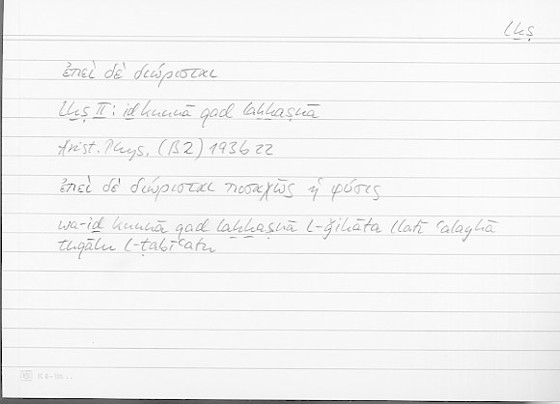 lḫṣ
ἐπεὶ δὲ διώρισται
lḫṣ II: iḏ kunnā qad laḫḫaṣnā
Arist. Phys. (B2) 193b22
ἐπεὶ δὲ διώρισται ποσαχῶς ἡ φύσις
wa-iḏ kunnā qad laḫḫaṣnā l-ǧihāta llatī ʿalayhā
tuqālu l-ṭabīʿatu